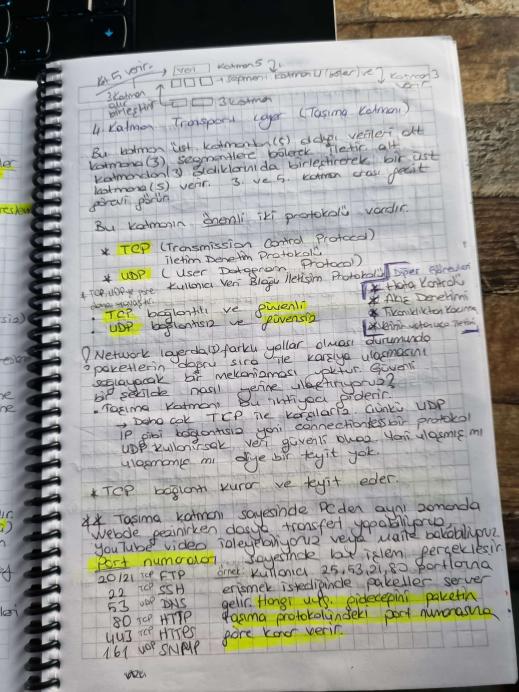 Kt.5 verir. → veri Katman 5
→ segment Katman 4 (böler) ve Katman 3 verir
3 Katman alır birleştirir
3 Katman
4. Katman Transport Layer (Taşıma Katmanı)
Bu katman üst katmandan(5) aldığı verileri alt
katmana (3) segmentlere bölerek iletir. alt
katmandan(3) aldıklarınıda birleştirerek bir üst
katmana (5) verir. 3. ve 5. katman arası geçit
görevi görür.
Bu katmanın önemli iki protokolü vardır.
* TCP (Transmission Control Protocol)
İletim Denetim Protokolü
* UDP (User Datagram Protocol)
Kullanıcı Veri Bloğu İletişim Protokolü
* TCP, UDP'ye göre daha yavaştır.
Diğer Görevleri
* Hata Kontrolü
* Akış Denetimi
* Tıkanıklıktan Kaçınma
TCP bağlantılı ve güvenli
UDP bağlantısız ve güvensiz
? Network layerda(3) farklı yollar olması durumunda
paketlerin doğru sıra ile karşıya ulaşmasını
sağlayacak bir mekanizması yoktur. Güvenli
bir şekilde nasıl yerine ulaştırıyoruz?
• Taşıma Katmanı Bu ihtiyacı giderir.
→ Daha çok TCP ile karşılarız. Çünkü UDP
IP gibi bağlantısız yani connectionless bir protokol
UDP kullanırsak veri güvenli olmaz yani ulaşmış mı
ulaşmamış mı diye bir teyit yok.
* TCP bağlantı kurar ve teyit eder.
** Taşıma katmanı sayesinde PC den aynı zamanda
Webde gezinirken dosya transferi yapabiliyoruz,
YouTube video izleyebiliyoruz veya Maile bakabiliyoruz
Port numaraları sayesinde bu işlem gerçekleşir.
20/21 TCP FTP örnek: Kullanıcı 25, 53, 21, 80 portlarına
22 TCP SSH erişmek istediğinde paketler server
53 UDP DNS gelir. Hangi uyg. gideceğini paketin
80 TCP HTTP taşıma protokolündeki port numarasına
443 TCP HTTPS göre karar verir.
161 UDP SNMP